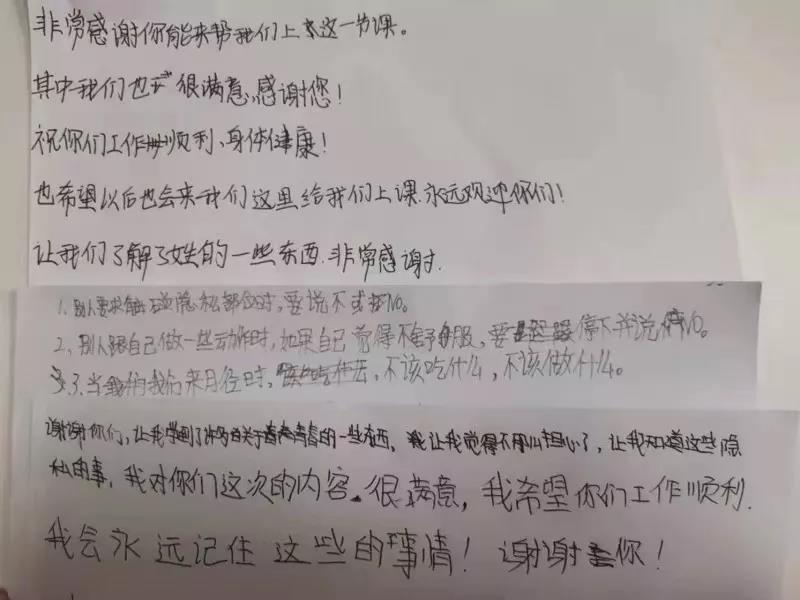 非常感谢你能来帮我们上这一节课。
其中我们也很满意,感谢您!
祝你们工作顺利、身体健康!
也希望以后也会来我们这里给我们上课.永远欢迎你们!
让我们了解了姓的一些东西.非常感谢.
1、别人要求触碰隐私部位时,要说不或NO。
2、别人跟自己做一些动作时,如果自己觉得不舒服,要停下并说NO。
3.当我们来月径时,不该吃什么,不该做什么。
谢谢你们,让我学到了关于青春的一些东西,让我觉得不用担心了,让我知道这些隐
私的事,我对你们这次的内容很满意,我希望你们工作顺利.
我会永远记住这些的事情!谢谢你!